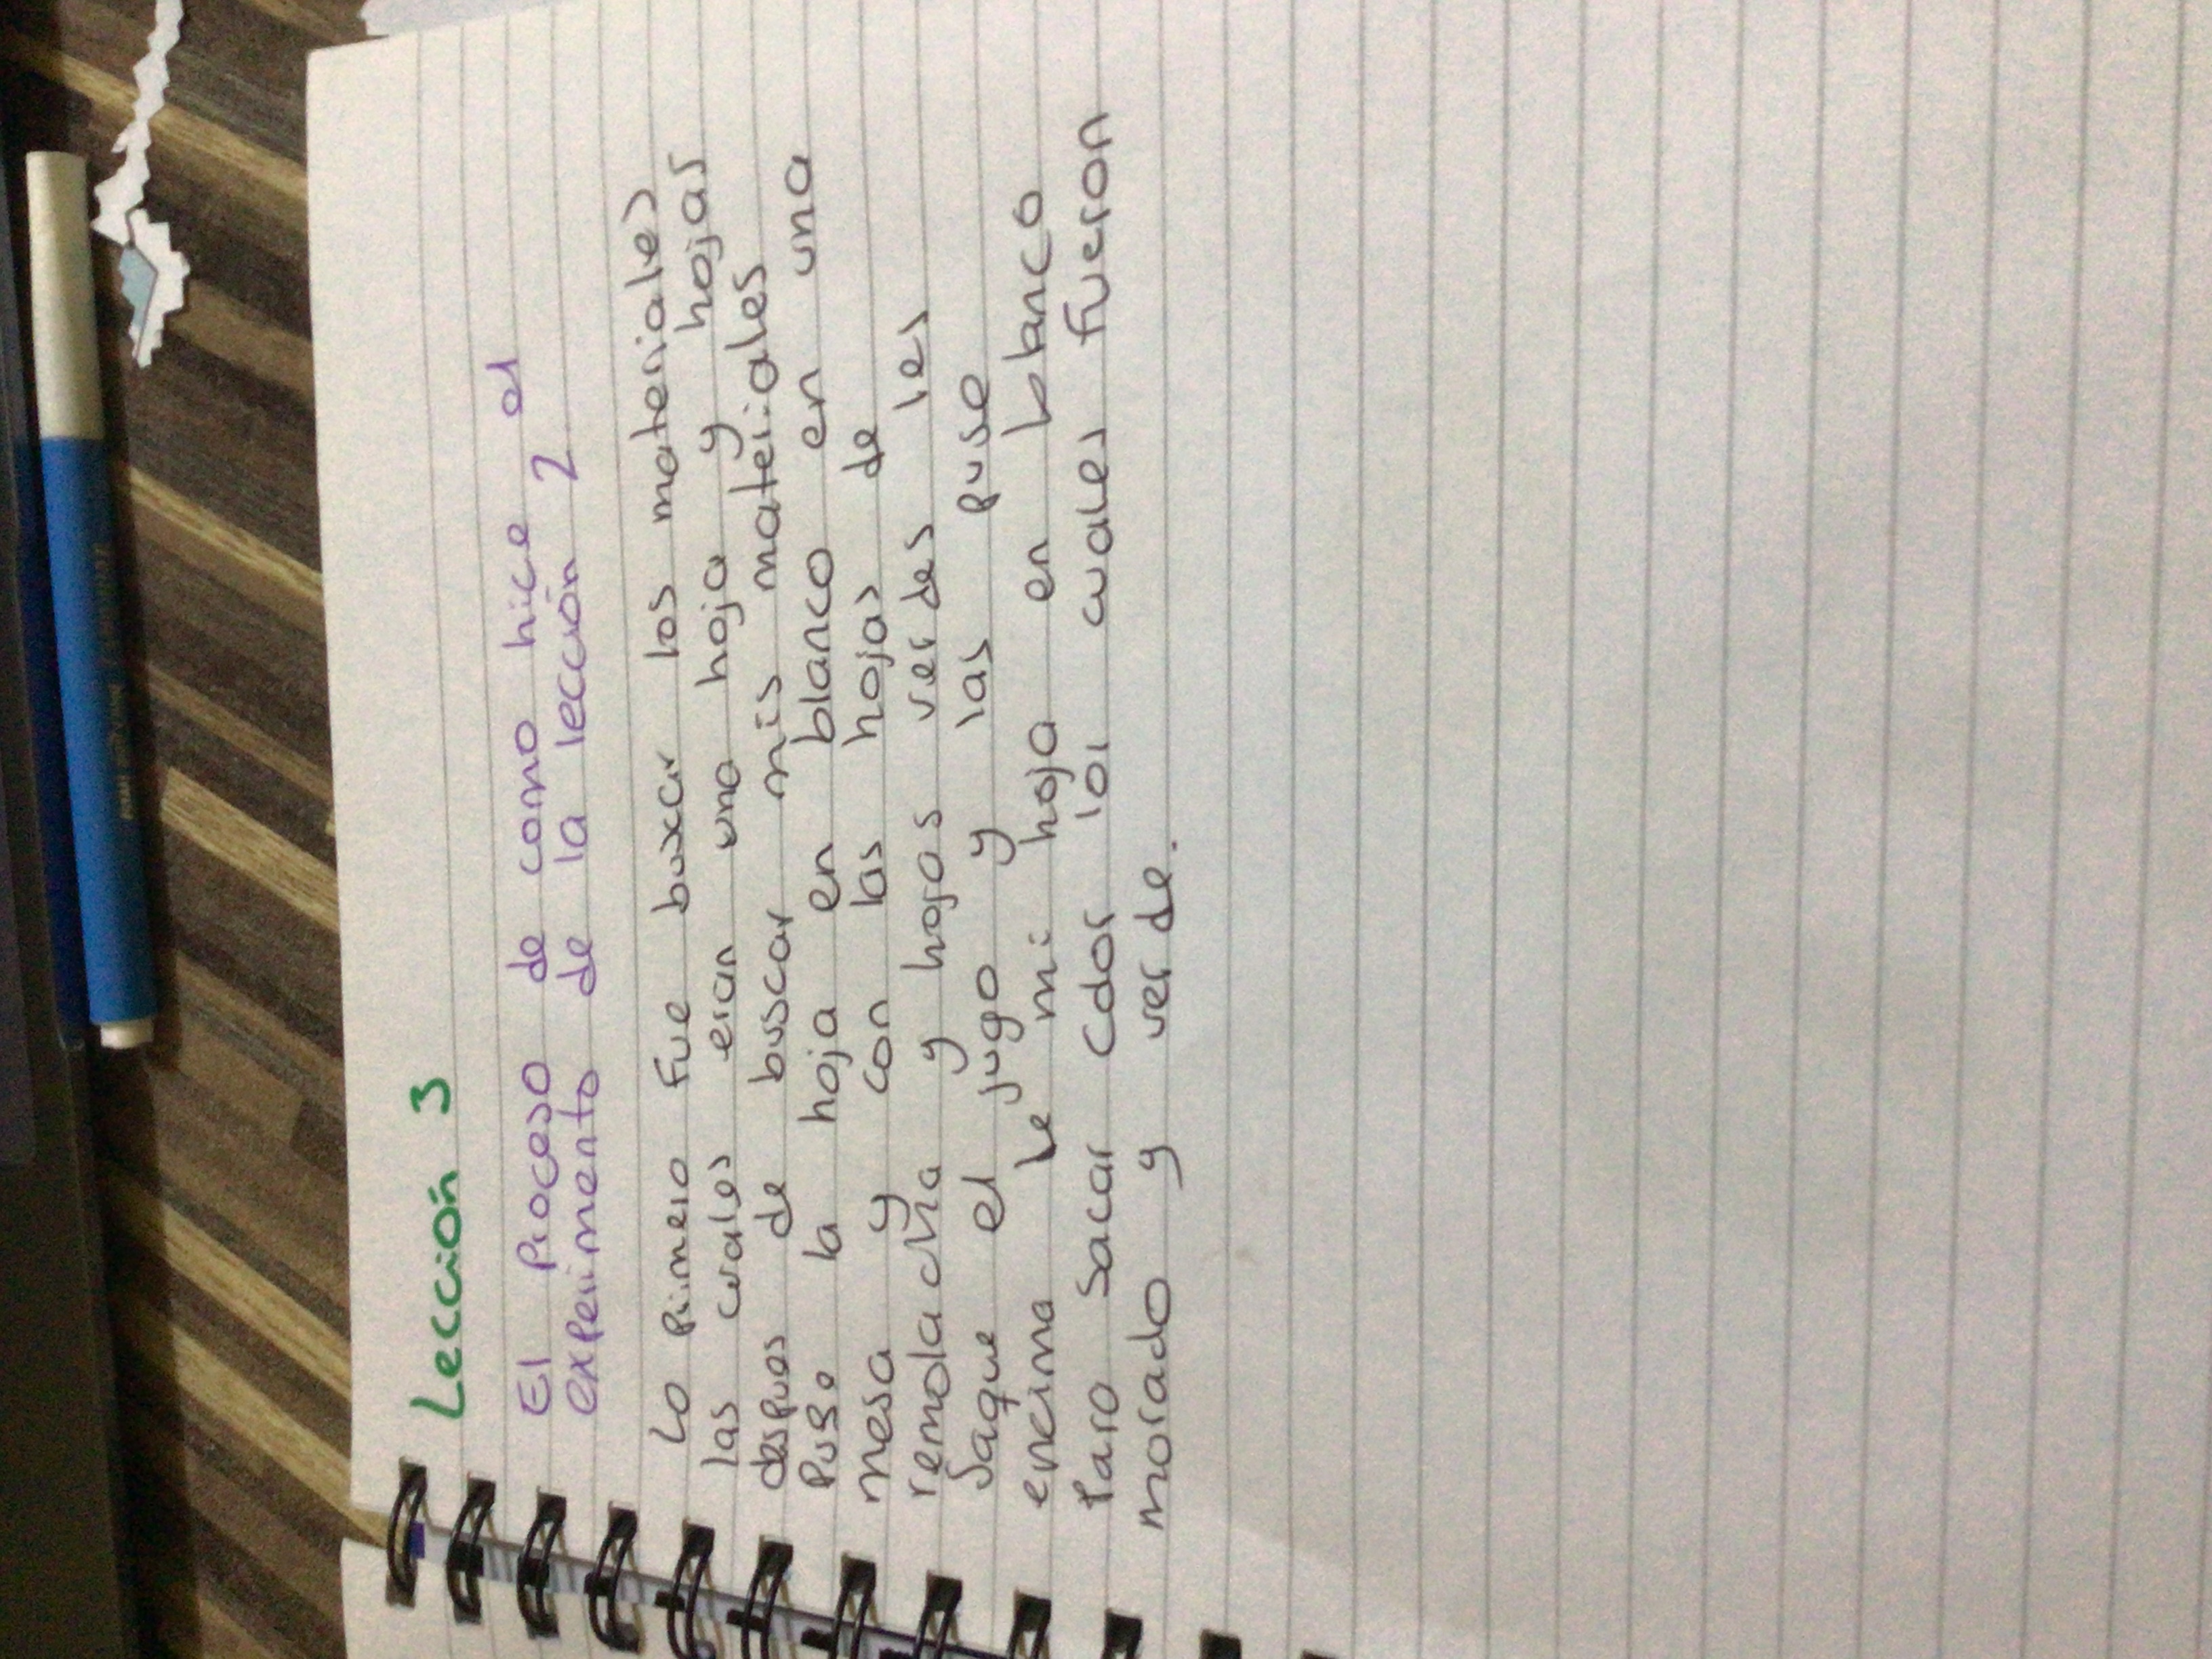 Lección 3
El Proceso de como hice el
experimento de la lección 2
Lo Primero Fue buscar los materiales
las cuales eran una hoja y hojas
despues de buscar mis materiales
Puse la hoja en blanco en una
mesa y con las hojas de
remolacha y hojas verdes les
Saque el jugo y las puse
encima de mi hoja en blanco
Para Sacar color los cuales fueron
morado y verde.